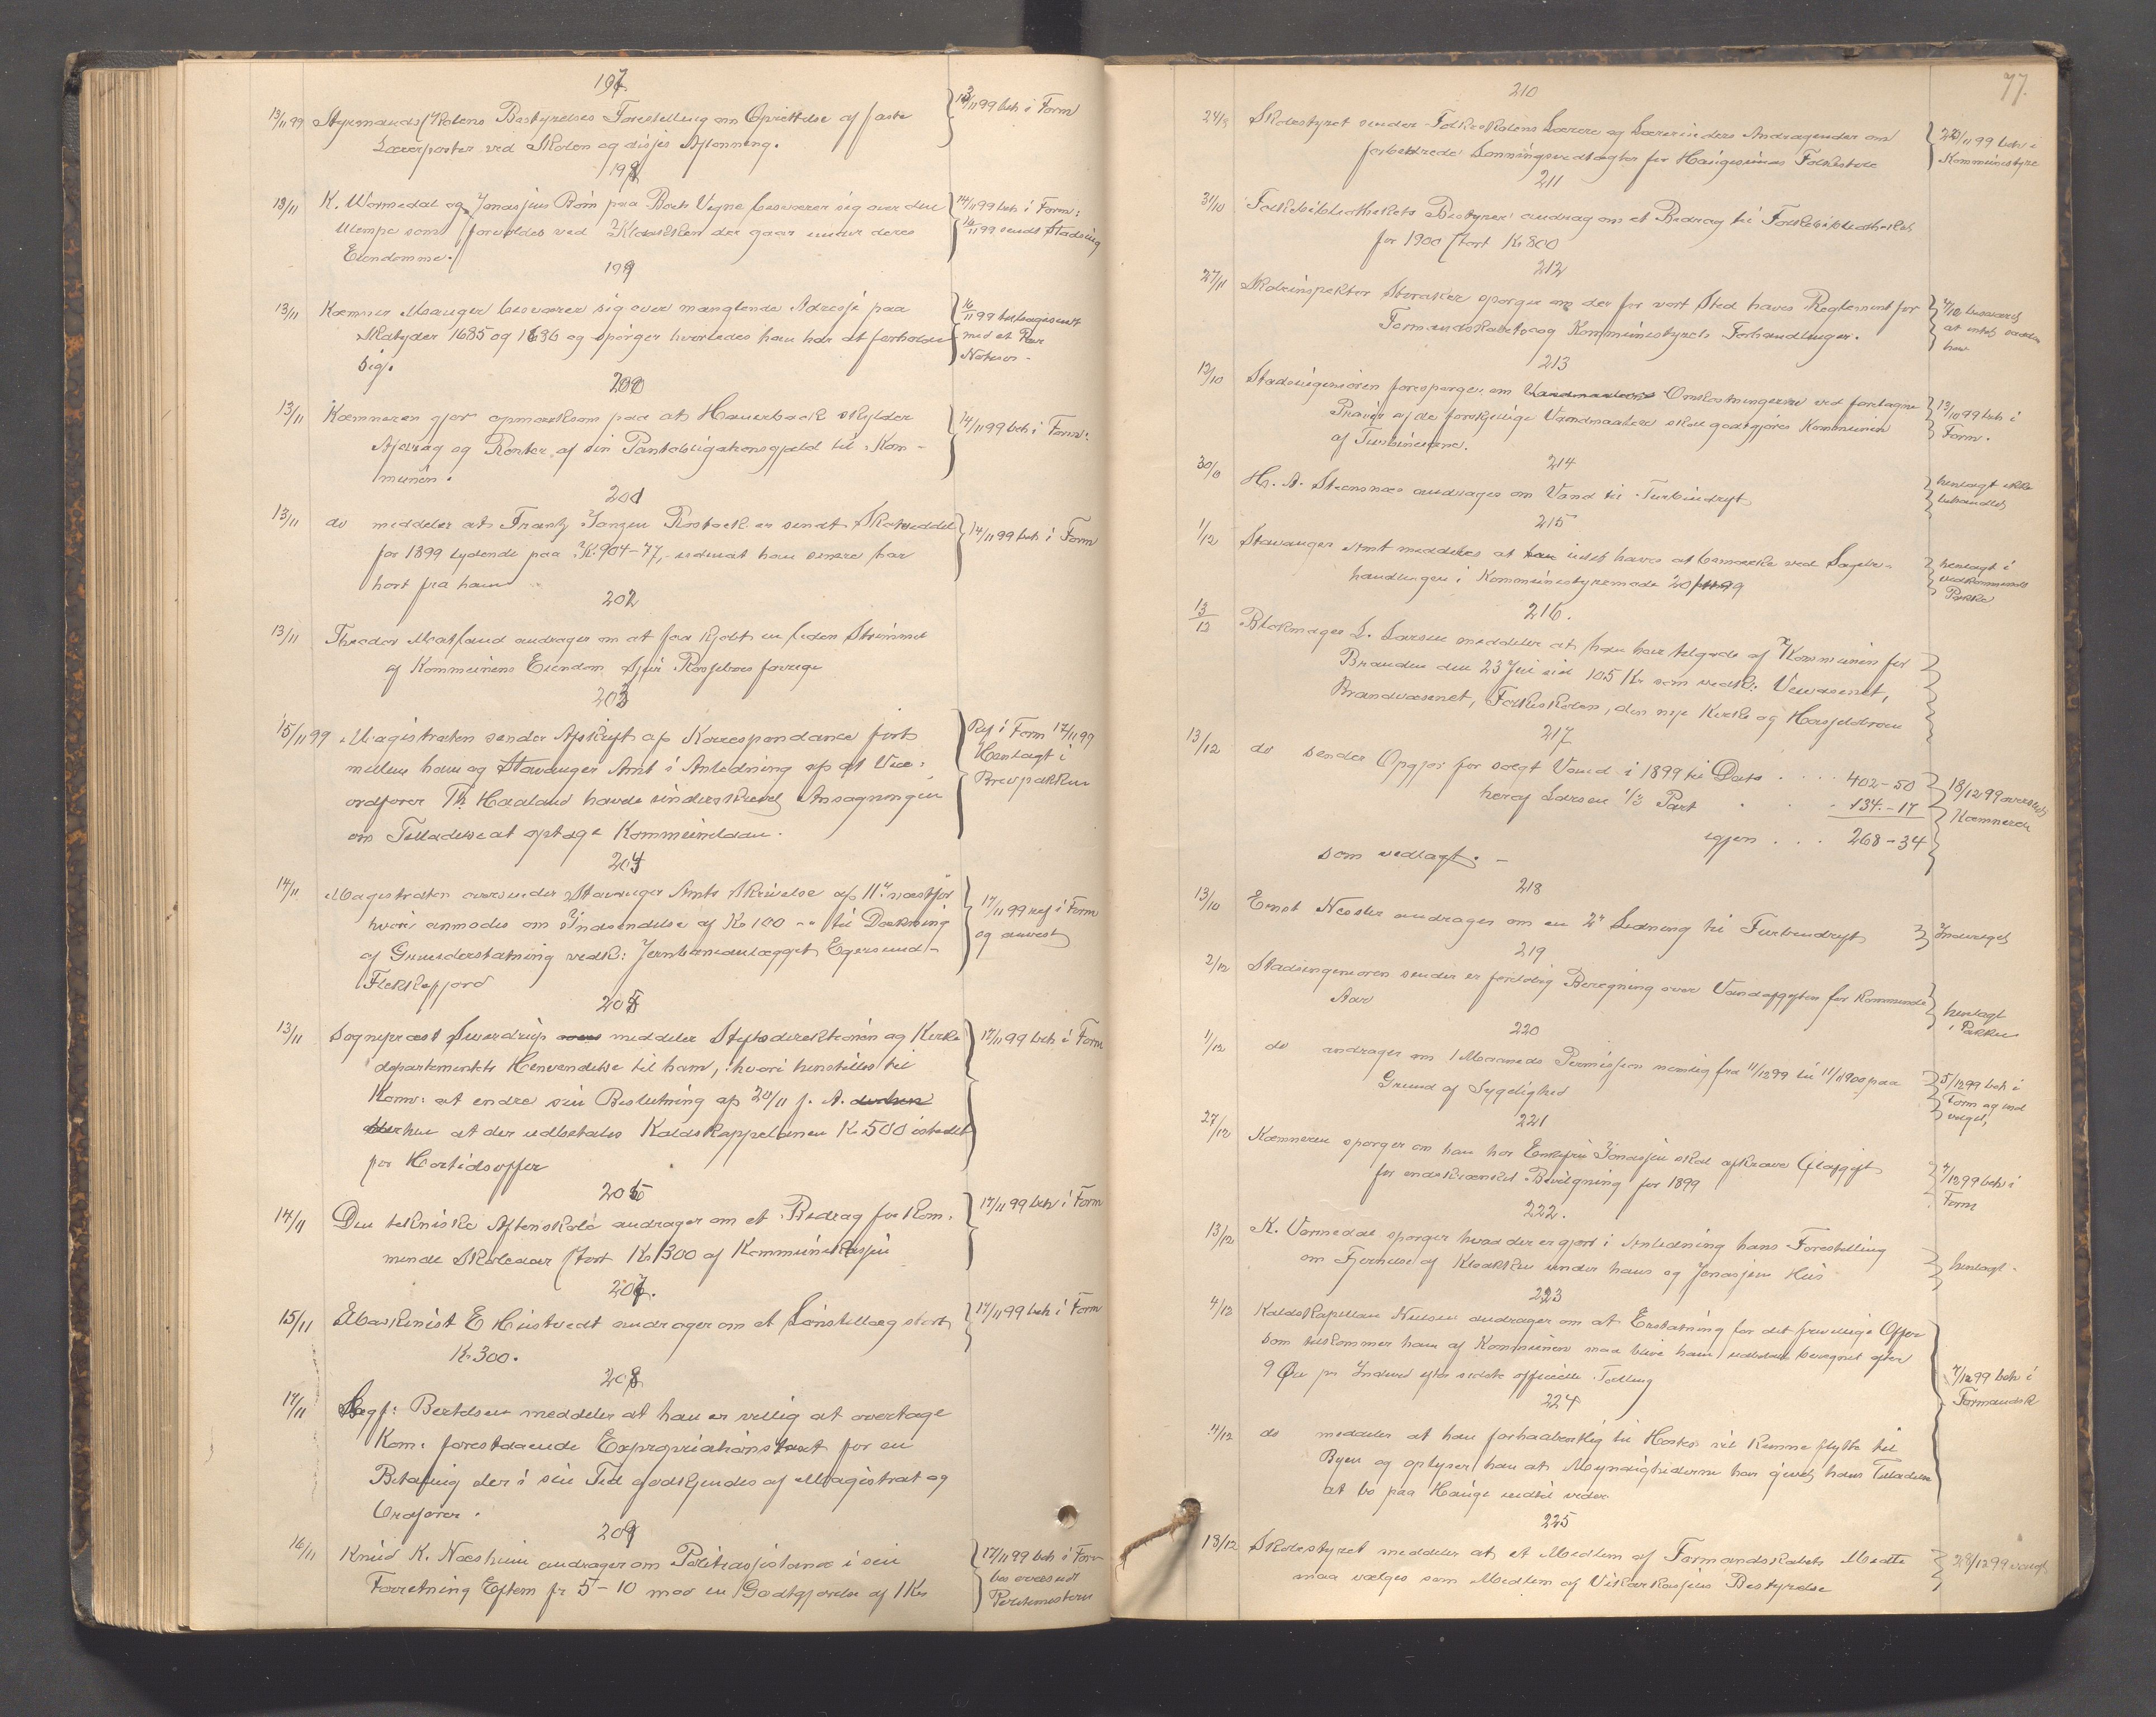 197.
13/11 99 Styrmandsskolens Bestyrelses Forestilling om Oprettelse af faste
Lærerposter ved Skolen og disses Aflønning.
13/11 99 beh i Form
198
13/11 K. Wormedal og Jonassens Börn paa Bæk Vegne besværer sig over den
Ulempe som forvoldes ved Kloakken der gaar under deres
Eiendomme.
14/11 99 beh i Form:
16/11 99 sendt Stadsing
199
13/11 Kæmner besværer sig over manglende Adresse paa
Skatyder 1685 og 1636 og spörger hvorledes han har at forholde
sig.
16/11 99 tilbagesendt
med et Par
Notiser -
200
13/11 Kæmneren gjör opmærksom paa at skylder
Afdrag og Renter af sin Pantobligationsgjæld til Kom-
munen.
14/11 99 beh i Form:
201
13/11 do meddeler at Frantz Jansen Rosbæk er sendt Skatseddel
for 1899 lydende paa Kr. 904-77, uden at han senere har
hört fra ham
14/11 99 beh i Form
202
13/11 Theodor andrager om at faa kjöbt en liden Strimmel
af Kommunens Eiendom
203
15/11 99 Magistraten sender Afskrift af Korrespondance fört
mellem ham og Stavanger Amt i Anledning af at Vice-
ordförer Th. Haaland havde underskrevet Ansögningen
om Tilladelse at optage Kommunelaan.
Ref i Form 17/11 99
Henlagt i
Brevpakken
204
14/11 Magistraten oversender Stavanger Amts Skrivelse af 11. næstför
hvori anmodes om Indsendelse af Kr 100 -" til Dækning
af Grunderstatning vedk: Jernbaneanlægget Egersund-
Flekkefjord
17/11 99 ref i Form
og anvist
205
13/11 Sognepræst Sverdrup meddeler Stiftsdirektionen og Kirke
departementets Henvendelse til ham, hvori henstilles til
Kom: at endre sin Beslutning af 20/11 f. A.
at der udbetales Kaldskappelanen Kr. 500 istedet
for Höitidsoffer
17/11 99 beh i Form
206
14/11 Den tekniske Aftenskole andrager om et Bidrag for kom-
mende Skoleaar stort Kr 1300 af Kommunekassen
17/11 99 beh i Form
207.
15/11 Maskinist E Huistvedt andrager om et Lönstillæg stort
Kr. 300.
17/11 99 beh i Form
208
17/11 Sagf: Bertelsen meddeler at han er villig at overtage
Kom: forestaaende Expropriationstaxt for en
Betaling der i sin Tid godkjendes af Magistrat og
Ordförer.
209
16/11 Knud K. Næsheim andrager om Politiassistance i sin
Forretning Eftem fr 5-10 mod en Godtgjörelse af 1 Kr
17/11 99 beh i Form
bes oversendt
Politimesteren
77.
210
Skolestyret sender Folkeskolens Lærere og Lærerinders Andragender om
forbedrede Lönningsvedtægter for Haugesunds Folkeskole
/11 99 beh i
Kommunestyre
211
31/10 Folkebibliothekets Bestyrer andrag om et Bidrag til Folkebibliotheket
for 1900 stort Kr 800
212
27/11 Skoleinspektör spörger om der for vort Sted haves Reglement for
Formandskabets og Kommunestyrets Forhandlinger.
7/12 besvaret
at intet saadan
haves
213
12/10 Stadsingeniören foresporger om Omkostningerne ved foretagne
Pröver af de forskjellige Vandmaalere skal godtgjöres Kommunen
af Turbineierne.
13/10 99 beh i
Form.
214
H. A. Steensnæs andrager om Vand til Turbindrift
henlagt ikke
behandlet
215
1/12 Stavanger Amt meddeles at intet haves at bemærke ved Sagsbe-
handlingen i Kommunestyremöde 20/11 99
henlagt i
vedkommende
Pakke
216.
13/12 Blokmager L. Larsen meddeler at han har tilgode af Kommunen for
Branden den 23 Juli sid 105 Kr som vedk: Veivæsenet,
Brandvæsenet, Folkeskolen, den nye Kirke og
217
13/12 do sender Opgjör for solgt Vand i 1899 til Dato . . . . 402-50
heraf Larsen 1/3 Part . . . 134.-17
igjen . . . 268-34
som vedlagt. -
18/12 99 oversendt
Kæmneren
218
13/10 Ernst Næsler andrager om en 2" Ledning til Turbindrift
Indvilget
219
2/12 Stadsingeniören sender en forelöbig Beregning over Vandafgiften for kommende
Aar
henlagt
i Pakke
220
1/12 do andrager om 1 Maaneds Permission nemlig fra 11/12 99 til 11/1 1900 paa
Grund af Sygelighed
5/12 99 beh i
Form og ind
vilget,
221
27/12 Kæmneren spörger om han hos Enkefru Jonassen skal afkræve Ölafgift
for indskrænket Bevilgning for 1899
7/12 99 beh i
Form
222.
13/12 K. Vormedal spörger hvad der er gjort i Anledning hans Forestilling
om Fjernelse af Kloakken under hans og Jonassens Hus
henlagt.
223
4/12 Kaldskapellan Nielsen andrager om at Erstatning for det frivillige Offer
som tilkommer ham af Kommunen maa blive ham udbetalt beregnet efter
9 Öre pr Indiv efter sidste officielle Tælling
7/12 99 beh i
Formandsk
224
11/12 do meddeler at han forhaabentlig til Hösten vil kunne flytte til
Byen og oplyser han at Myndighederne har givet ham Tilladelse
at bo paa Hauge indtil videre
225
18/12 Skolestyret meddeler at et Medlem af Formandskabets Midte
maa vælges som Medlem af Vikarkassens Bestyrelse
28/12 99 valgt